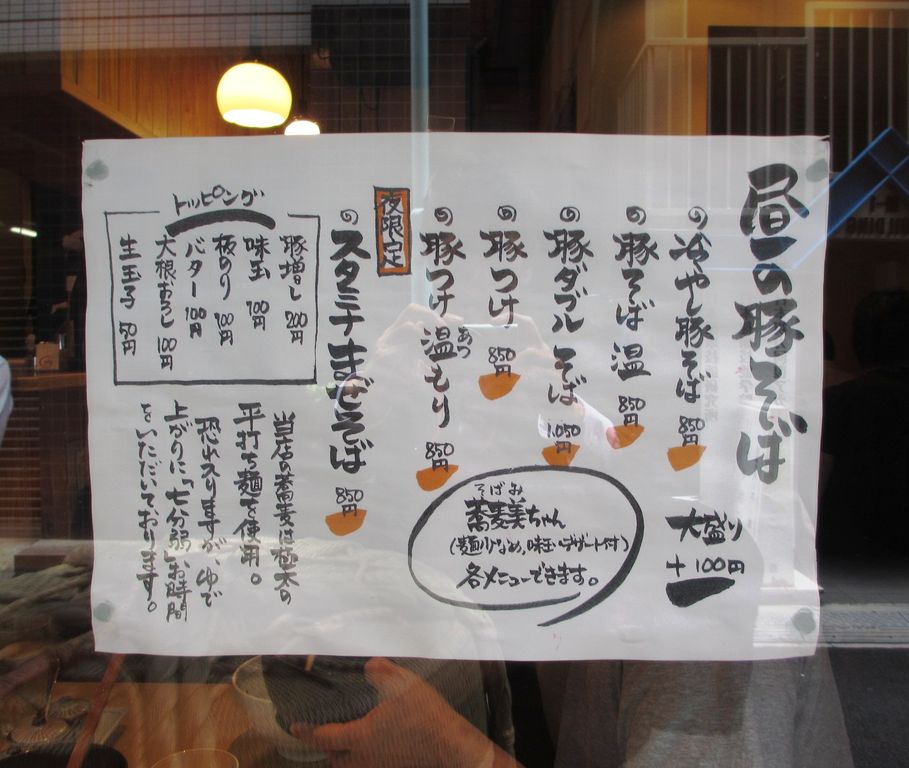 昼の豚そば
冷やし豚そば 850円
大盛り
+100円
豚そば 温 850円
豚ダブルそば 1,050円
豚つけ 850円
豚つけ 温もり 850円
あつ
そばみ
蕎麦美ちゃん
(麺少なめ、味玉・デザート付)
各メニューできます。
夜限定
スタミナまぜそば 850円
トッピング
豚増し 200円
味玉 100円
板のり 100円
バター 100円
大根おろし 100円
生玉子 50円
当店の蕎麦は極太の
平打ち麺を使用。
恐れ入りますが、ゆで
上がりに「七分弱」お時間
をいただいております。